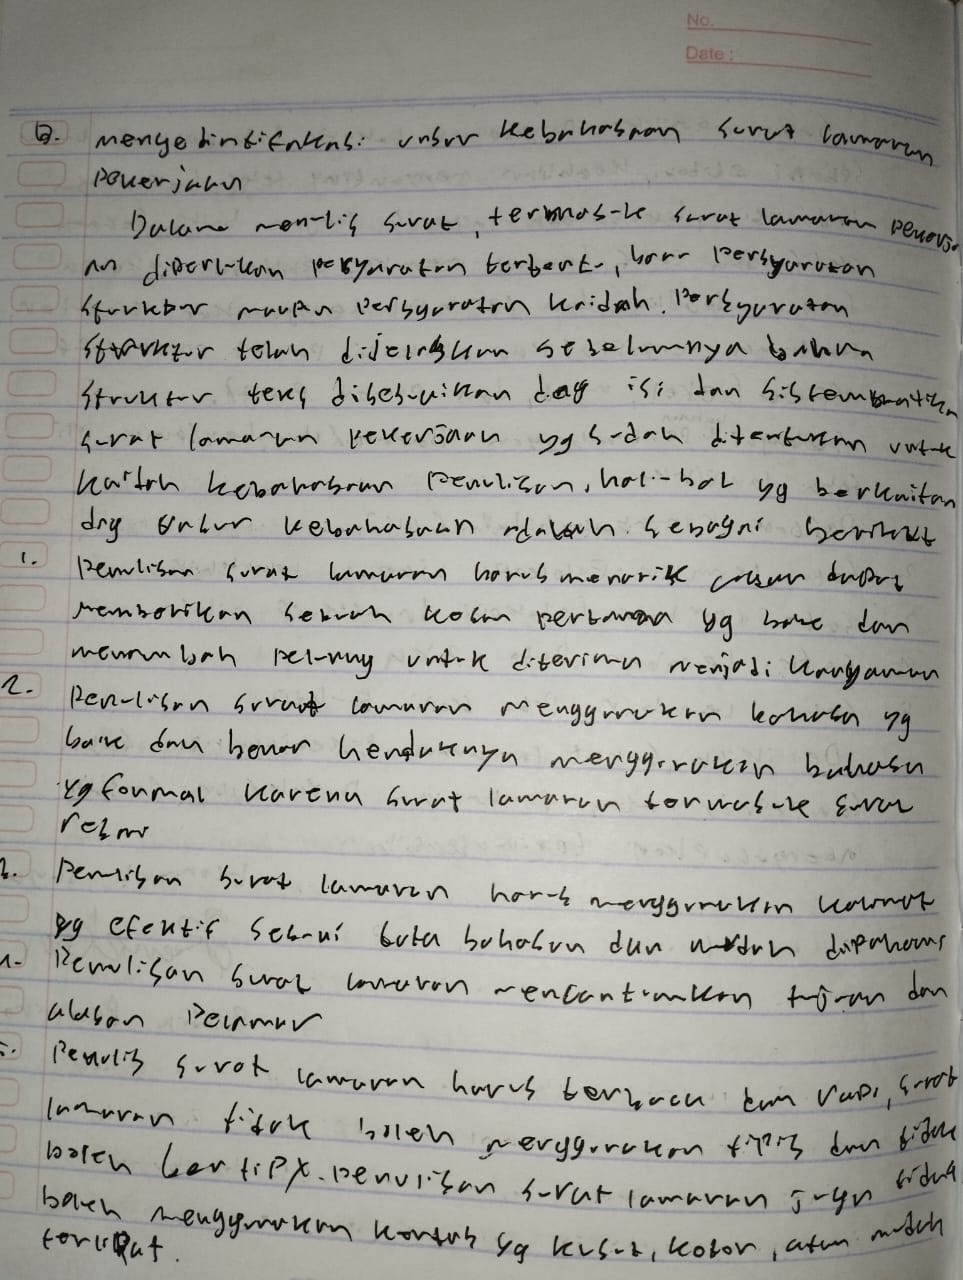 No.
Date :
B. mengedintifikasi unsur kebahasaan surat lamaran
pekerjaan
Dalam menulis surat, termasuk surat lamaran pekerja
an diperlukan persyaratan tertentu, baik persyaratan
struktur maupun persyaratan kaidah. Persyaratan
struktur telah dijelaskan sebelumnya bahwa
struktur teks disesuaikan dgg isi dan sistematika
surat lamaran pekerjaan yg sudah ditentukan untuk
kaidah kebahasaan penulisan, hal-hal yg berkaitan
dng unsur kebahasaan adalah sebagai berikut
1. Penulisan surat lamaran harus menarik dapat
memberikan sebuah kesan pertama yg baik dan
menambah peluang untuk diterima menjadi karyawan
2. Penulisan surat lamaran menggunakan bahasa yg
baik dan benar hendaknya menggunakan bahasa
yg formal karena surat lamaran termasuk surat
resmi
3. Penulisan surat lamaran harus menggunakan kalimat
yg efektif sesuai tata bahasa dan mudah dipahami
4. Penulisan surat lamaran mencantumkan tujuan dan
alasan Pelamar
5. Penulis surat lamaran harus terbaca dan rapi, surat
lamaran tidak boleh menggunakan tipis dan tidak
boleh bertipx. penulisan surat lamaran juga tidak
boleh menggunakan kertas yg kusut, kotor, atau mudah
terlipat.